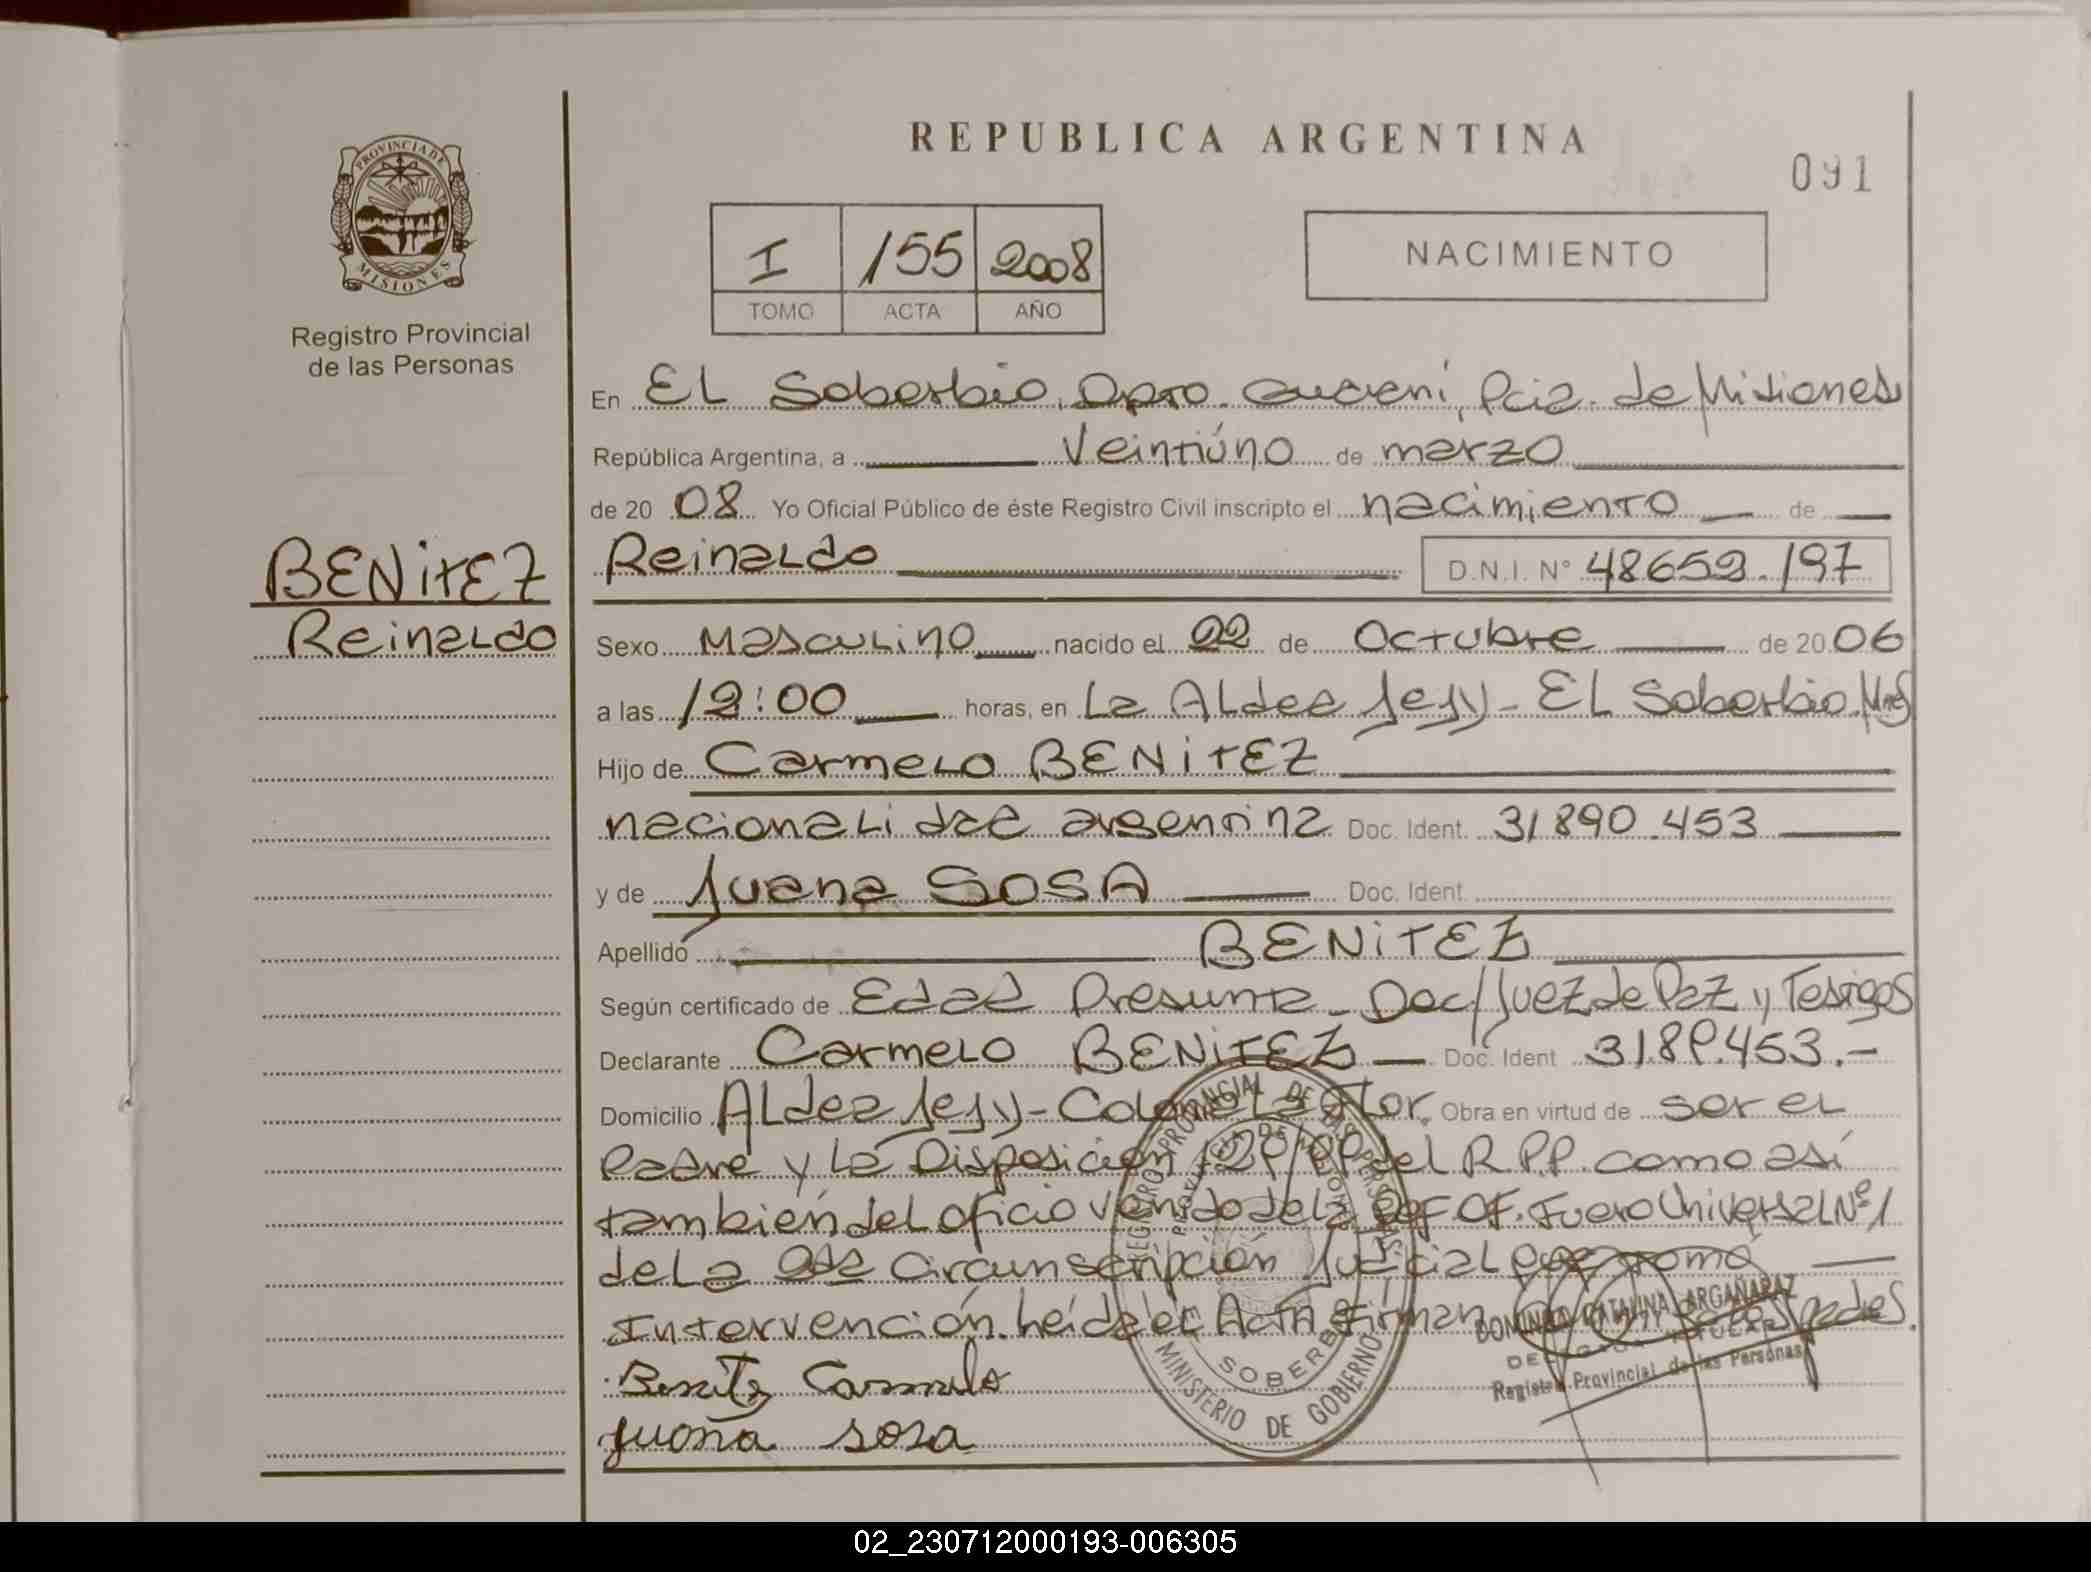 PROVINCIA DE
MISIONES
Registro Provincial
de las Personas
BENITEZ
Reinaldo
REPUBLICA ARGENTINA
091
I 155 2008
TOMO ACTA AÑO
NACIMIENTO
En EL Soberbio, Dpto. Guaraní, Pcia. de Misiones
República Argentina, a Veintiúno de marzo
de 20 08 Yo Oficial Público de éste Registro Civil inscripto el nacimiento de
Reinaldo D.N.I. N° 48659.197
Sexo Masculino nacido el 22 de Octubre de 20 06
a las 12:00 horas, en La Aldea Jejy - EL Soberbio, Mnes
Hijo de Carmelo BENITEZ
nacionalidad argentina Doc. Ident. 31890.453
y de Juana SOSA Doc. Ident.
Apellido BENITEZ
Según certificado de Edad Presunta - Doc/Juez de Paz y Testigos
Declarante Carmelo BENITEZ Doc. Ident 3189.453.-
Domicilio Aldea Jejy - Colonia La Flor. Obra en virtud de ser el
Padre y la Disposición del R.P.P. como así
también del oficio venido de la Def. Of. Fuero Universal Nº 1
de la 2da Circunscripción Judicial que tomó
Intervención. Leída el Acta Firman
Benitez Carmelo
Juana sosa
REGISTRO PROVINCIAL DE LAS PERSONAS
MINISTERIO DE GOBIERNO
DOMINGA CATALINA ARGAÑARAZ
Registro Provincial de las Personas
02_230712000193-006305